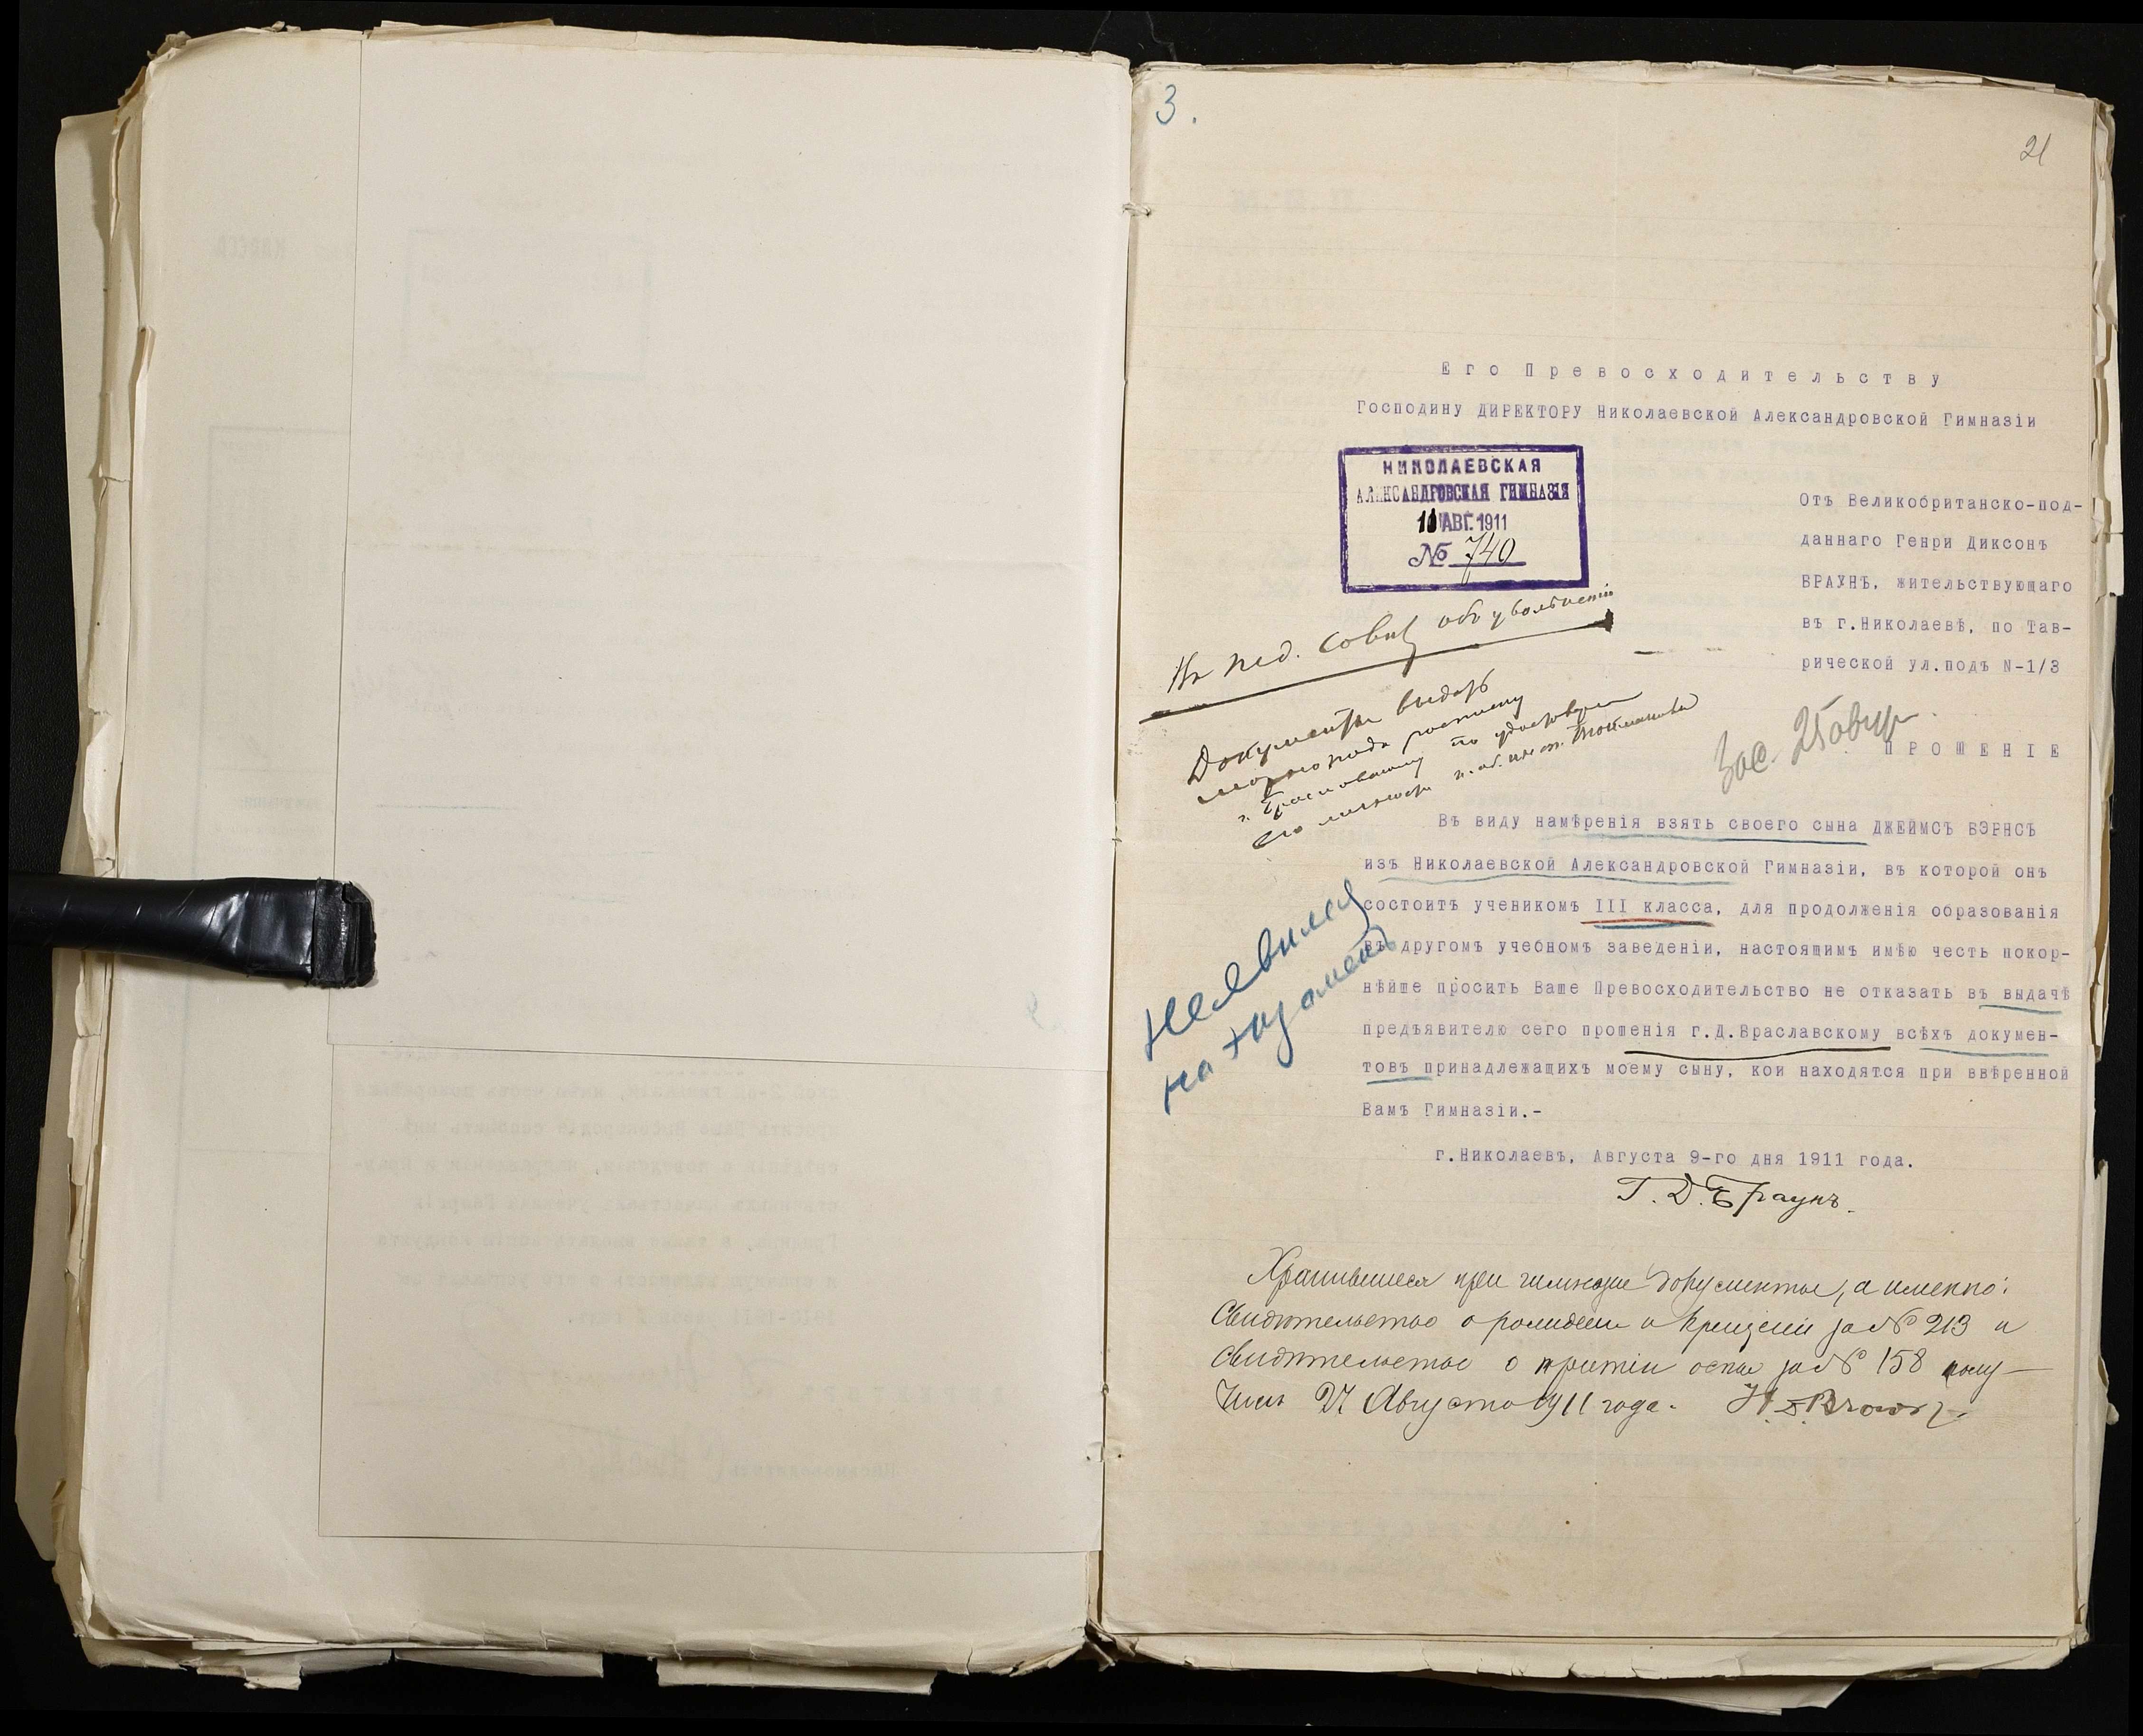 3.
21
Его Превосходительству
Господину ДИРЕКТОРУ Николаевской Александровской Гимназіи
НИКОЛАЕВСКАЯ
АЛЕКСАНДРОВСКАЯ ГИМНАЗІЯ
11 АВГ. 1911
№ 740
Отъ Великобританско-под-
даннаго Генри Диксонъ
БРАУНЪ, жительствующаго
въ г.Николаевѣ, по Тав-
рической ул.подъ N-1/3
Въ пед. Совѣтъ объ увольненіи
Документы выдать
подъ росписку
по удостовѣреніи
его личности
Зас. 25 авг.
ПРОШЕНІЕ
Въ виду намѣренія взять своего сына ДЖЕЙМСЪ БЭРНСЪ
изъ Николаевской Александровской Гимназіи, въ которой онъ
состоитъ ученикомъ III класса, для продолженія образованія
въ другомъ учебномъ заведеніи, настоящимъ имѣю честь покор-
нѣйше просить Ваше Превосходительство не отказать въ выдачѣ
предъявителю сего прошенія г.Д.Браславскому всѣхъ докумен-
товъ принадлежащихъ моему сыну, кои находятся при ввѣренной
Вамъ Гимназіи.-
Не явился
на экзаменъ
г.Николаевъ, Августа 9-го дня 1911 года.
Г. Д. Браунъ.
Хранившіеся при гимназіи документы, а именно:
Свидѣтельство о рожденіи и крещеніи за № 213 и
Свидѣтельство о привитіи оспы за № 158 полу-
чилъ 27 Августа 1911 года. H. D. Brown.